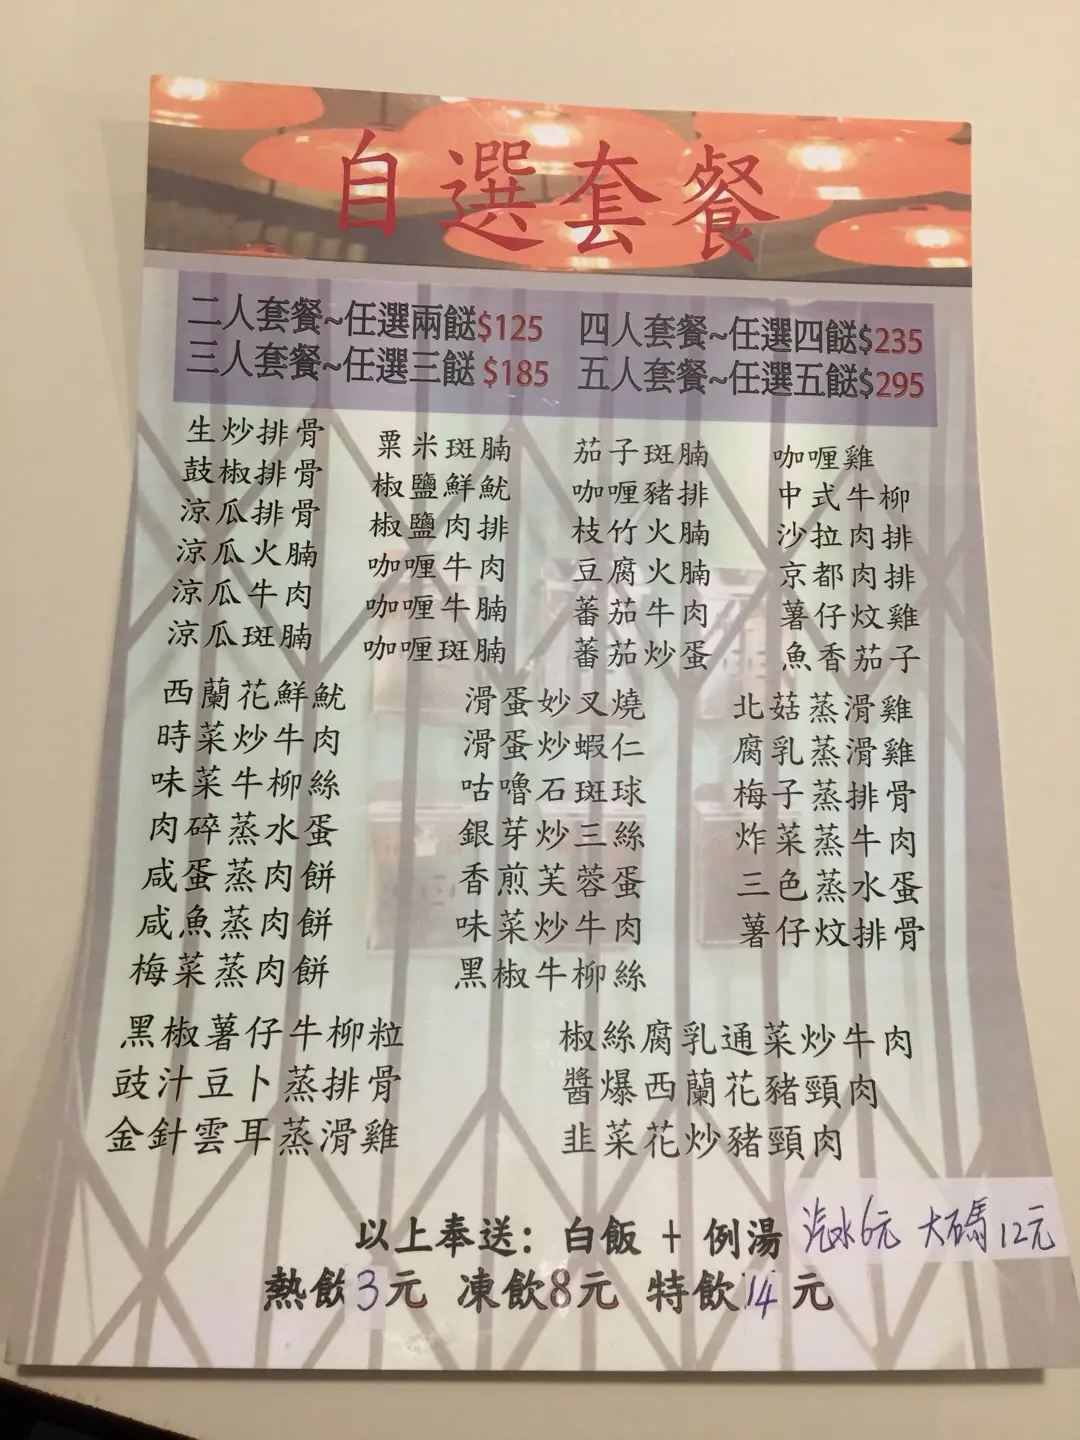 自選套餐
二人套餐~任選兩餸$125
三人套餐~任選三餸$185
四人套餐~任選四餸$235
五人套餐~任選五餸$295
生炒排骨
鼓椒排骨
涼瓜排骨
涼瓜火腩
涼瓜牛肉
涼瓜斑腩
粟米斑腩
椒鹽鮮魷
椒鹽肉排
咖喱牛肉
咖喱牛腩
咖喱斑腩
茄子斑腩
咖喱豬排
枝竹火腩
豆腐火腩
蕃茄牛肉
蕃茄炒蛋
咖喱雞
中式牛柳
沙拉肉排
京都肉排
薯仔炆雞
魚香茄子
西蘭花鮮魷
時菜炒牛肉
味菜牛柳絲
肉碎蒸水蛋
咸蛋蒸肉餅
咸魚蒸肉餅
梅菜蒸肉餅
滑蛋妙叉燒
滑蛋炒蝦仁
咕嚕石斑球
銀芽炒三絲
香煎芙蓉蛋
味菜炒牛肉
黑椒牛柳絲
北菇蒸滑雞
腐乳蒸滑雞
梅子蒸排骨
炸菜蒸牛肉
三色蒸水蛋
薯仔炆排骨
黑椒薯仔牛柳粒
豉汁豆卜蒸排骨
金針雲耳蒸滑雞
椒絲腐乳通菜炒牛肉
醬爆西蘭花豬頸肉
韭菜花炒豬頸肉
以上奉送：白飯 + 例湯
汽水6元 大碼12元
熱飲3元 凍飲8元 特飲14元